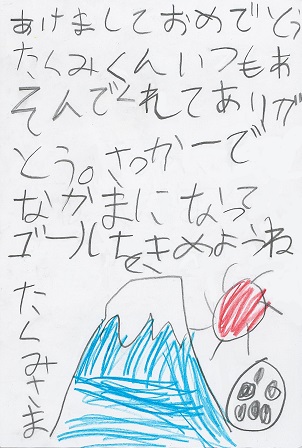 あけましておめでとう
たくみくんいつもあ
そんでくれてありが
とう。さっかーで
なかまになって
ゴールをきめようね
たくみさま